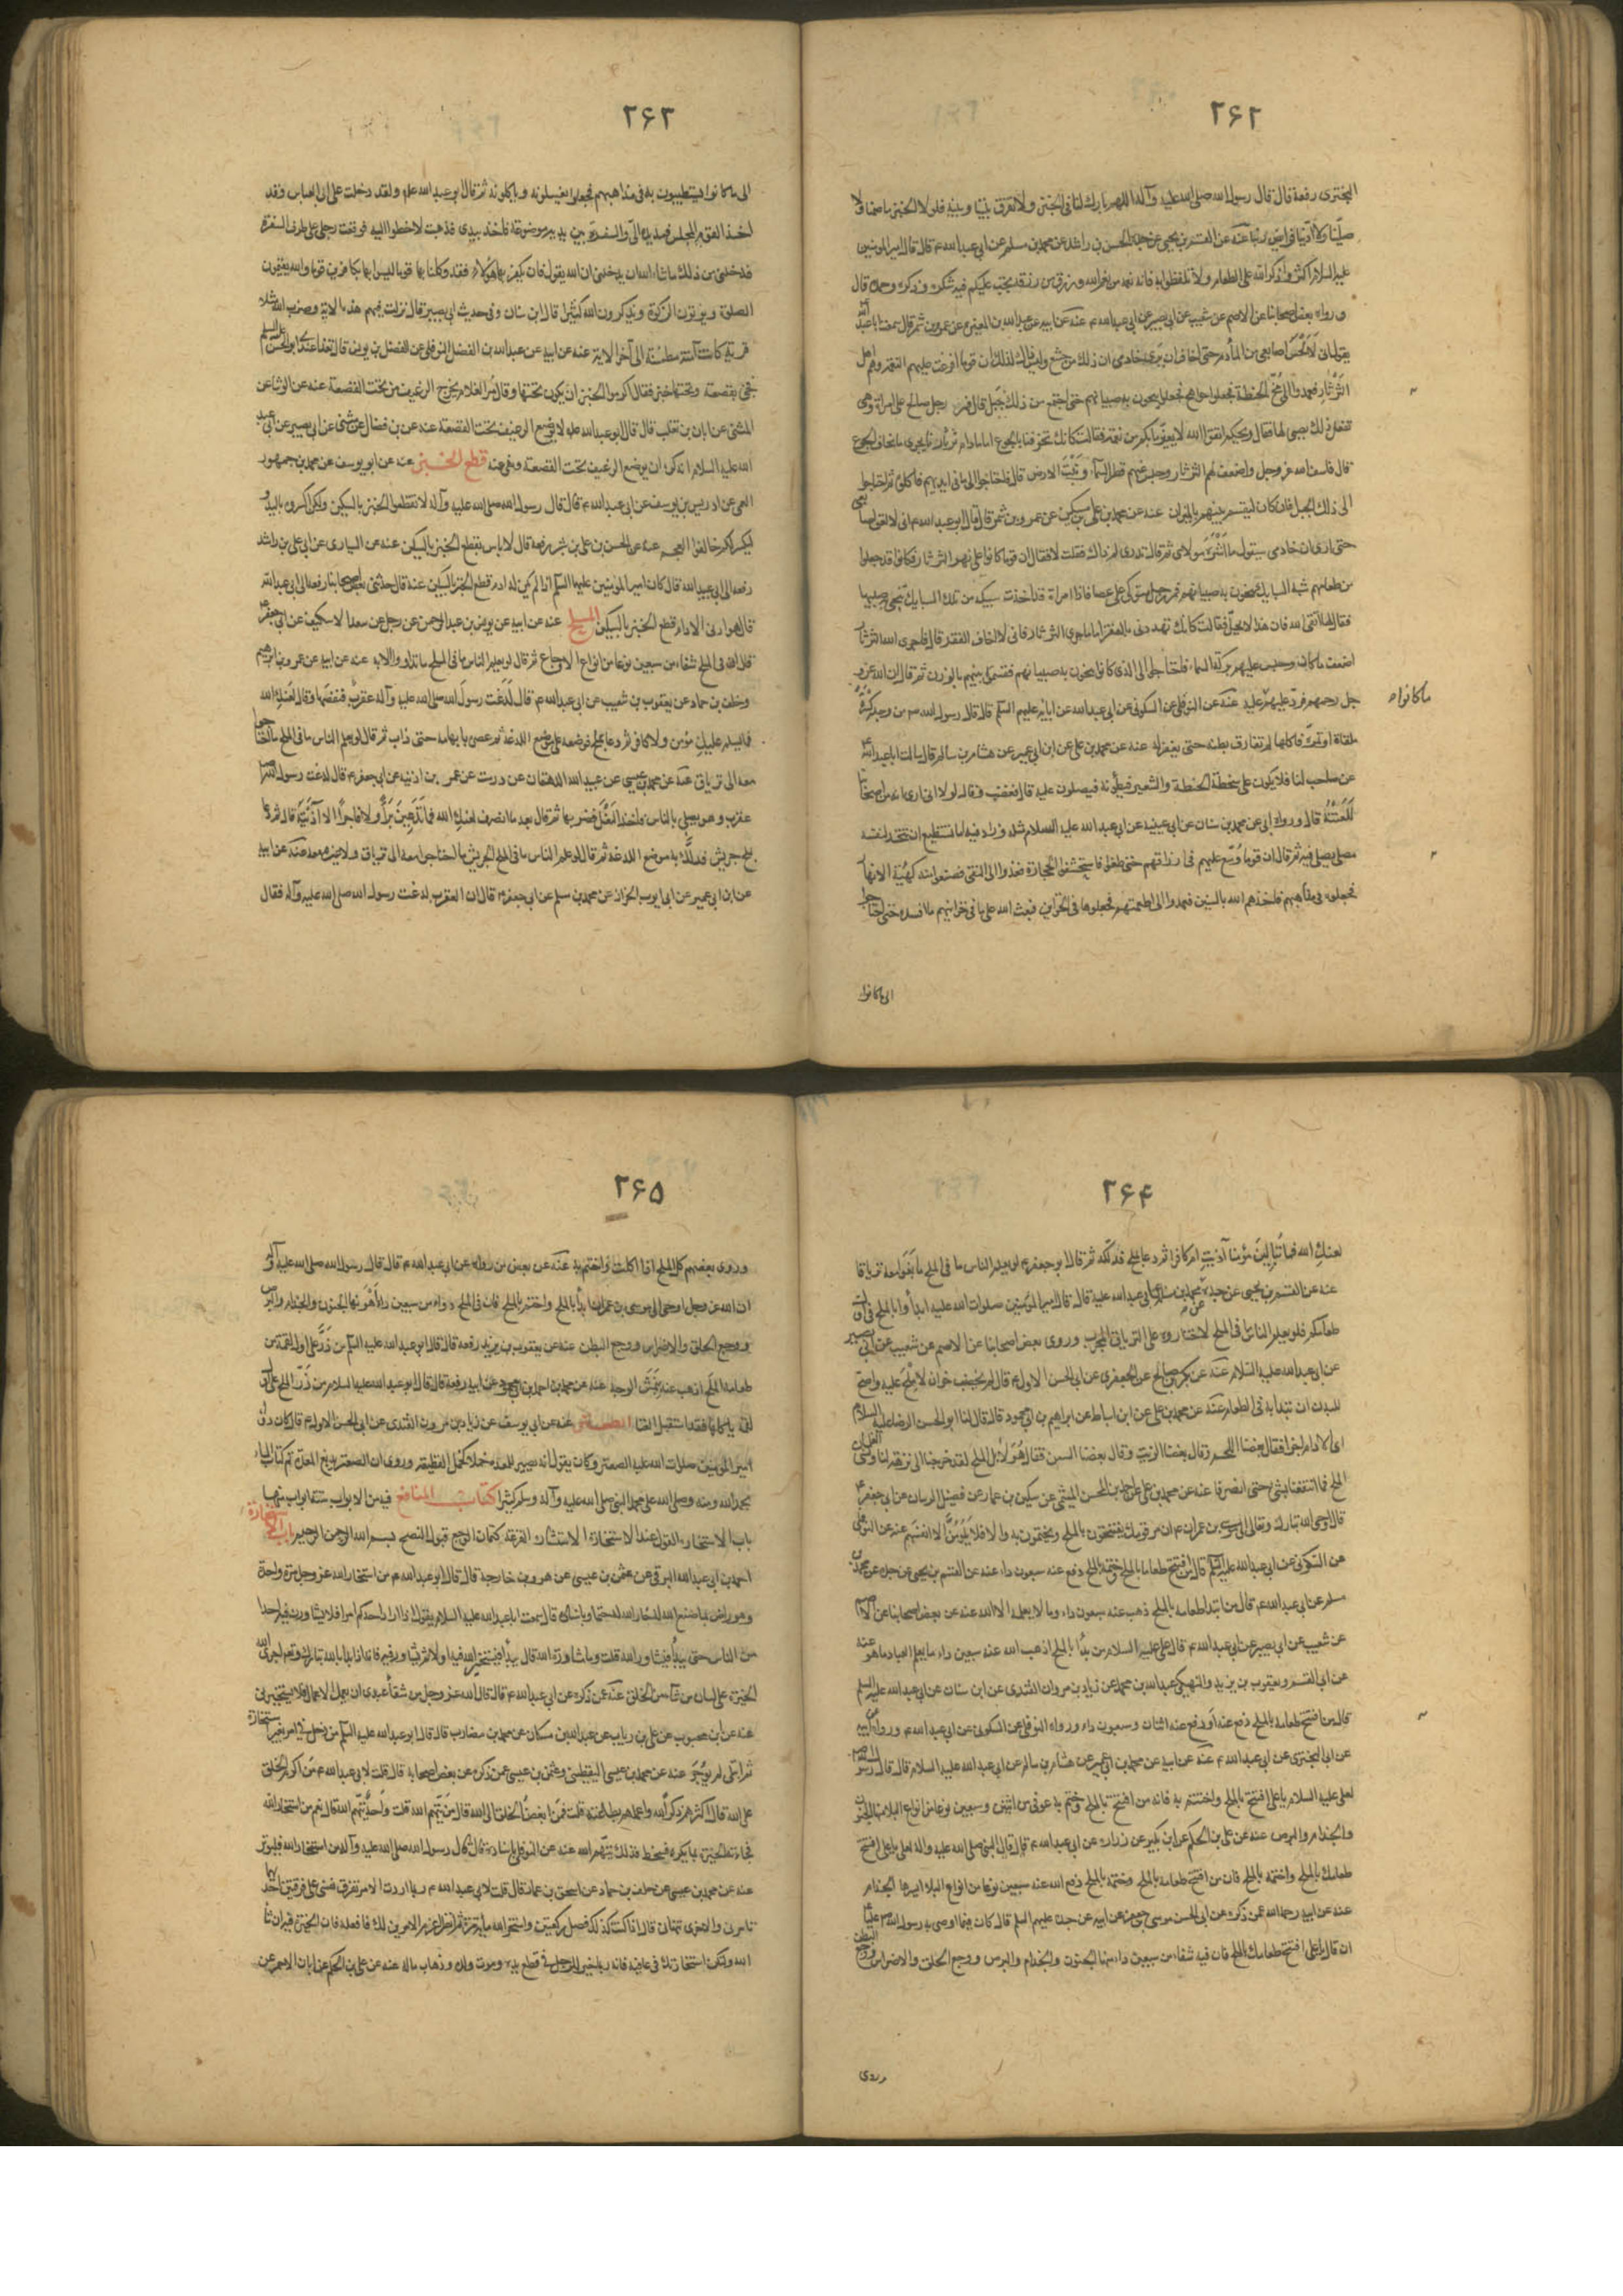 ۲۶۲
البختری رفعة قال قال رسول الله صلی الله علیه وآله اللهم بارك لنا فی الخبز ولا تفرق بیننا وبینه فلولا الخبز ما صمنا ولا
صلینا ولا ادینا فرایض ربنا عنه عن القسم بن یحیی عن جده الحسن بن راشد عن محمد بن مسلم عن ابی عبد الله ع قال قال امیر المؤمنین
علیه السلام اکثروا ذکر الله علی الطعام ولا تلغطوا فیه فانه نعمة من نعم الله ورزق من رزقه یجب علیکم فیه شکره وذکره وحمده قال
ورواه بعض اصحابنا عن الاصم عن شعیب عن ابی بصیر عن ابی عبد الله ع عنه عن ابیه عن عبد الله بن المغیرة عن عمرو بن شمر قال سمعت ابا عبد الله
یقول انی لالحس اصابعی من المأدم حتی اخاف ان یری خادمی ان ذلك من جشع ولیس ذلك لذلك ان قوما افرغت علیهم النعمة وهم اهل
الثرثار فعمدوا الی مخ الحنطة فجعلوا خبزا هجاء فجعلوا ینجون به صبیانهم حتی اجتمع من ذلك جبل قال فمر رجل صالح علی امراة وهی
تفعل ذلك بصبی لها فقال ویحکم اتقوا الله لا یغیر ما بکم من نعمة فقالت کانك تخوفنا بالجوع اما مادام ثرثارنا یجری ما نخاف الجوع
قال فاسف الله عز وجل واضعف لهم الثرثار وحبس عنهم قطر السماء ونبت الارض قال فاحتاجوا الی ما فی ایدیهم فاکلوه ثم احتاجوا
الی ذلك الجبل فان کان لیقسم بینهم بالمیزان عنه عن محمد بن علی عن مسکین عن عمرو بن شمر قال قال ابو عبد الله ع انی لالعق اصابعی
حتی اری ان خادمی سیقول ما اشره مولای ثم قال تدری لم ذاك فقلت لا فقال ان قوما کانوا علی نهر الثرثار فکانوا قد جعلوا
من طعامهم شبه السبایك ینجون به صبیانهم فمر رجل متوکئ علی عصا فاذا امراة قد اخذت سبیکة من تلك السبایك تنجی به صبیها
فقال لها اتقی الله فان هذا لا یحل فقالت کانك تهددنی بالفقر اما ما جری الثرثار فانی لا اخاف الفقر قال فاجری الله الثرثار
اضعف ما کان وحبس علیهم برکة السماء فاحتاجوا الی الذی کانوا ینجون به صبیانهم فقسموه بینهم بالوزن ثم قال ان الله عز و
ما کانوا
جل رحمهم فرد علیهم عنه عن النوفلی عن السکونی عن ابی عبد الله عن ابائه علیهم السلام قال قال رسول الله ص من وجد کسرة
ملقاة او تمرة فاکلها لم تفارق بطنه حتی یغفر له عنه عن محمد بن علی عن ابن ابی عمیر عن هشام بن سالم قال سالت ابا عبد الله
عن صاحب لنا فلاح یکون علی سطحه الحنطة والشعیر فیطؤنه فیصلون علیه قال فغضب وقال لولا انی اری انه من اصحابنا
للعنته قال ورواه ابی عن محمد بن سنان عن ابی عیینه عن ابی عبد الله علیه السلام مثله وزاد فیه اما یستطیع ان یتخذ لنفسه
مصلی یصلی فیه ثم قال ان قوما وسع علیهم فی ارزاقهم حتی طغوا فاستخشنوا الحجارة فعمدوا الی النقی فصنعوا منه کهیئة الافهار
فجعلوه فی مذاهبهم فاخذهم الله بالسنین فعمدوا الی اطعمتهم فجعلوها فی الخزاین فبعث الله علی ما فی خزاینهم ما افسده حتی احتاجوا
الی ما کانوا
۲۶۳
الی ما کانوا یستطیبون به فی مذاهبهم فجعلوا یغسلونه ویاکلونه ثم قال ابو عبد الله ع ولقد دخلت علی ابی العباس وقد
اخذ القوم المجلس فمد یده الی والسفرة بین یدیه موضوعة فاخذ بیدی فذهبت لاخطو الیه فوقعت رجلی علی طرف السفرة
فدخلنی من ذلك ما شاء الله ان یدخلنی ان الله یقول فان یکفر بها هؤلاء فقد وکلنا بها قوما لیسوا بها بکافرین قوما والله یقیمون
الصلوة ویؤتون الزکوة ویذکرون الله کثیرا قال ابن سنان وفی حدیث ابی بصیر قال نزلت فیهم هذه الایة وضرب الله مثلا
قریة کانت آمنة مطمئنة الی آخر الایة عنه عن ابیه عن عبد الله بن الفضل النوفلی عن الفضل بن یونس قال تغدا عندی ابو الحسن علیه السلام
فجئ بقصعة وتحتها خبز فقال اکرموا الخبز ان یکون تحتها وقال مر الغلام یخرج الرغیف من تحت القصعة عنه عن الوشا عن
المثنی عن ابان بن تغلب قال قال ابو عبد الله علیه لا یوضع الرغیف تحت القصعة عنه عن بن فضال عن مثنی عن ابی بصیر عن ابی عبد
الله علیه السلام انه کره ان یوضع الرغیف تحت القصعة ونهی عنه قطع الخبز عنه عن ابو یوسف عن محمد بن جمهور
العمی عن ادریس بن یوسف عن ابی عبد الله ع قال قال رسول الله صلی الله علیه وآله لا تقطعوا الخبز بالسکین ولکن اکسروه بالید و
لیکسر لکم خالفوا العجم عنه عن الحسن بن علی بن بشیر رفعه قال لا باس بقطع الخبز بالسکین عنه عن السیاری عن ابی علی بن راشد
رفعه الی ابی عبد الله قال کان امیر المؤمنین علیه السلام اذا لم یکن له ادم قطع الخبز بالسکین عنه قال حدثنی بعض اصحابنا رفعه الی ابی عبد الله
قال هو ادنی الادام قطع الخبز بالسکین الملح عنه عن ابیه عن یونس بن عبد الرحمن عن رجل عن سعد الاسکیف عن ابی جعفر ع
قال ان فی الملح شفاء من سبعین نوعا من انواع الاوجاع ثم قال لو یعلم الناس ما فی الملح ما تداووا الا به عنه عن ابیه عن عمرو بن ابراهیم
وخلف بن حماد عن یعقوب بن شعیب عن ابی عبد الله ع قال لدغت رسول الله صلی الله علیه وآله عقرب فنفضها وقال لعنك الله
فما یسلم علیك مؤمن ولا کافر ثم دعا بملح فوضعه علی موضع اللدغة ثم عصره بابهامه حتی ذاب ثم قال لو یعلم الناس ما فی الملح ما احتاجوا
معه الی تریاق عنه عن محمد بن عیسی عن عبید الله الدهقان عن درست عن عمر بن اذنیه عن ابی جعفر ع قال لدغت رسول الله ص
عقرب وهو یصلی بالناس فاخذ النعل فضربها ثم قال بعد ما انصرف لعنك الله فما تدعین برا ولا فاجرا الا آذیتیه قال ثم دعا
بملح جریش فدلك به موضع اللدغة ثم قال لو علم الناس ما فی الملح الجریش ما احتاجوا معه الی تریاق ولا غیره معه عنه عن ابیه
عن ابن ابی عمیر عن ابی ایوب الخزاز عن محمد بن مسلم عن ابی جعفر ع قال ان العقرب لدغت رسول الله صلی الله علیه وآله فقال
۲۶۴
لعنك الله فما تبالین مؤمنا آذیت ام کافرا ثم دعا بملح فدلکه ثم قال ابو جعفر ع لو یعلم الناس ما فی الملح ما بغوا معه تریاقا
عنه عن القسم بن یحیی عن جده عن محمد بن مسلم عن ابی عبد الله علیه قال قال امیر المؤمنین صلوات الله علیه ابدأوا بالملح فی اول
طعامکم فلو یعلم الناس ما فی الملح لاختاروه علی التریاق المجرب وروی بعض اصحابنا عن الاصم عن شعیب عن ابی بصیر
عن ابی عبد الله علیه السلام عنه عن بکر بن صالح عن الجعفری عن ابی الحسن الاول ع قال لم یخصب خوان لا ملح علیه واصح
للبدن ان تبدا به فی الطعام عنه عن محمد بن علی عن ابن اسباط عن ابراهیم بن ابی محمود قال قال لنا ابو الحسن الرضا علیه السلام
ای الادام اجزا فقال بعضنا اللحم وقال بعضنا الزیت وقال بعضنا السمن فقال هو لا بل الملح لقد خرجنا الی نزهة لنا ونسی الغلمان
الملح فما انتفعنا بشئ حتی انصرفنا عنه عن محمد بن علی عن احمد بن الحسن المیثمی عن سکین بن عمار عن فضیل الرسان عن ابی جعفر ع
قال اوحی الله تبارك وتعالی الی موسی بن عمران ع ان مر قومك یفتتحون بالملح ویختمون به والا فلا یلومن الا انفسهم عنه عن النوفلی
عن السکونی عن ابی عبد الله علیه السلام قال من افتتح طعاما بالملح وختمه بالملح دفع عنه سبعون داء عنه عن القسم بن یحیی عن جده عن محمد بن
مسلم عن ابی عبد الله ع قال من ابتدا طعامه بالملح ذهب عنه سبعون داء وما لا یعلمه الا الله عنه عن بعض اصحابنا عن الاصم
عن شعیب عن ابی بصیر عن ابی عبد الله ع قال قال علی علیه السلام من بدأ بالملح اذهب الله عنه سبعین داء ما یعلم العباد ما هو عنه
عن ابی القسم ویعقوب بن یزید والنهیکی عبد الله بن محمد عن زیاد بن مروان القندی عن ابن سنان عن ابی عبد الله علیه السلام
قال من افتتح طعامه بالملح دفع عنه او رفع عنه اثنان وسبعون داء ورواه النوفلی عن السکونی عن ابی عبد الله ع ورواه عن ابیه
عن ابی البختری عن ابی عبد الله ع عنه عن ابیه عن محمد بن ابی عمیر عن هشام بن سالم عن ابی عبد الله علیه السلام قال قال رسول الله ص
لعلی علیه السلام یا علی افتتح بالملح واختتم به فانه من افتتح بالملح وختم به عوفی من اثنین وسبعین نوعا من انواع البلاء منه الجنون
والجذام والبرص عنه عن علی بن الحکم عن ابن بکیر عن زرارة عن ابی عبد الله ع قال قال النبی صلی الله علیه واله لعلی یا علی افتتح
طعامك بالملح واختمه بالملح فان من افتتح طعامه بالملح وختمه بالملح دفع الله عنه سبعین نوعا من انواع البلا ایسرها الجذام
عنه عن ابیه رحمه الله عمن ذکره عن ابی الحسن موسی بن جعفر عن ابیه عن جده علیهم السلم قال کان فیما اوصی به رسول الله ص علیا ع
ان قال یا علی افتتح طعامك بالملح فان فیه شفاء من سبعین داء منها الجنون والجذام والبرص ووجع الحلق والاضراس ووجع البطن
وروی
۲۶۵
وروی بعضهم کل الملح اذا اکلت واختتم به عنه عن بعض من رواه عن ابی عبد الله ع قال قال رسول الله صلی الله علیه وآله
ان الله عز وجل اوحی الی موسی بن عمران ابدأ بالملح واختم بالملح فان فی الملح دواء من سبعین داء اهونها الجنون والجذام والبرص
ووجع الحلق والاضراس ووجع البطن عنه عن یعقوب بن یزید رفعه قال قال ابو عبد الله علیه السلام من ذر علی اول لقمة من
طعامه الملح ذهب عنه بنمش الوجه عنه عن محمد بن احمد بن ابی محمود عن ابیه رفعه قال قال ابو عبد الله علیه السلام من ذر الملح علی اول
لقمة یاکلها فقد استقبل الغنا الصعتر عنه عن ابی یوسف عن زیاد بن مروان القندی عن ابی الحسن الاول ع قال کان دواء
امیر المؤمنین صلوات الله علیه الصعتر وکان یقول انه یصیر للمعدة خملا کخمل القطیفة وروی ان الصعتر یدبغ المعدة تم کتاب الماء
بحمد الله ومنه وصلی الله علی محمد النبی صلی الله علیه وآله وسلم کثیرا کتاب المنافع فیه من الابواب ستة ابواب منها
باب الاستخارة القول عند الاستخارة الاستشارة القرعة کتمان الوجع قبول النصح بسم الله الرحمن الرحیم باب الاستخارة
احمد بن ابی عبد الله البرقی عن عثمن بن عیسی عن هرون بن خارجة قال قال ابو عبد الله ع من استخار الله عز وجل مرة واحدة
وهو راض بما صنع الله له خار الله له حتما وباسناده قال سمعت ابا عبد الله علیه السلام یقول اذا اراد احدکم امرا فلا یشاور فیه احدا
من الناس حتی یبدأ فیشاور الله قلت وما مشاورة الله قال یبدأ فیستخیر الله فیه اولا ثم یشاور فیه فانه اذا بدأ بالله تبارك وتعالی اجری الله
الخیرة علی لسان من شاء من الخلق عنه عمن ذکره عن ابی عبد الله ع قال قال الله عز وجل من شقاء عبدی ان یعمل الاعمال فلا یستخیرنی
عنه عن ابن محبوب عن علی بن ریاب عن عبد الله بن مسکان عن محمد بن مضارب قال قال ابو عبد الله علیه السلام من دخل فی امر بغیر استخارة
ثم ابتلی لم یوجر عنه عن محمد بن عیسی الیقطینی وعثمن بن عیسی عمن ذکره عن بعض اصحابه قال قلت لابی عبد الله ع من اکرم الخلق
علی الله قال اکثرهم ذکرا لله واعملهم بطاعته قلت فمن ابغض الخلق الی الله قال من یتهم الله قلت واحد یتهم الله قال نعم من استخار الله
فجاءته الخیرة بما یکره فسخط فذلك یتهم الله عنه عن النوفلی باسناده قال قال رسول الله صلی الله علیه وآله من استخار الله فلیوتر
عنه عن محمد بن عیسی عن خلف بن حماد عن اسحق بن عمار قال قلت لابی عبد الله ع ربما اردت الامر تفرق منی علی فرقتین احدیهما
تامرنی والاخری تنهانی قال اذا کنت کذلك فصل رکعتین واستخر الله مائة مرة ثم انظر اعزم الامرین لك فافعله فان الخیرة فیه ان شاء
الله ولتکن استخارتك فی عافیة فانه ربما خیر للرجل فی قطع یده وموت ولده وذهاب ماله عنه عن علی بن الحکم عن ابان الاحمر عن